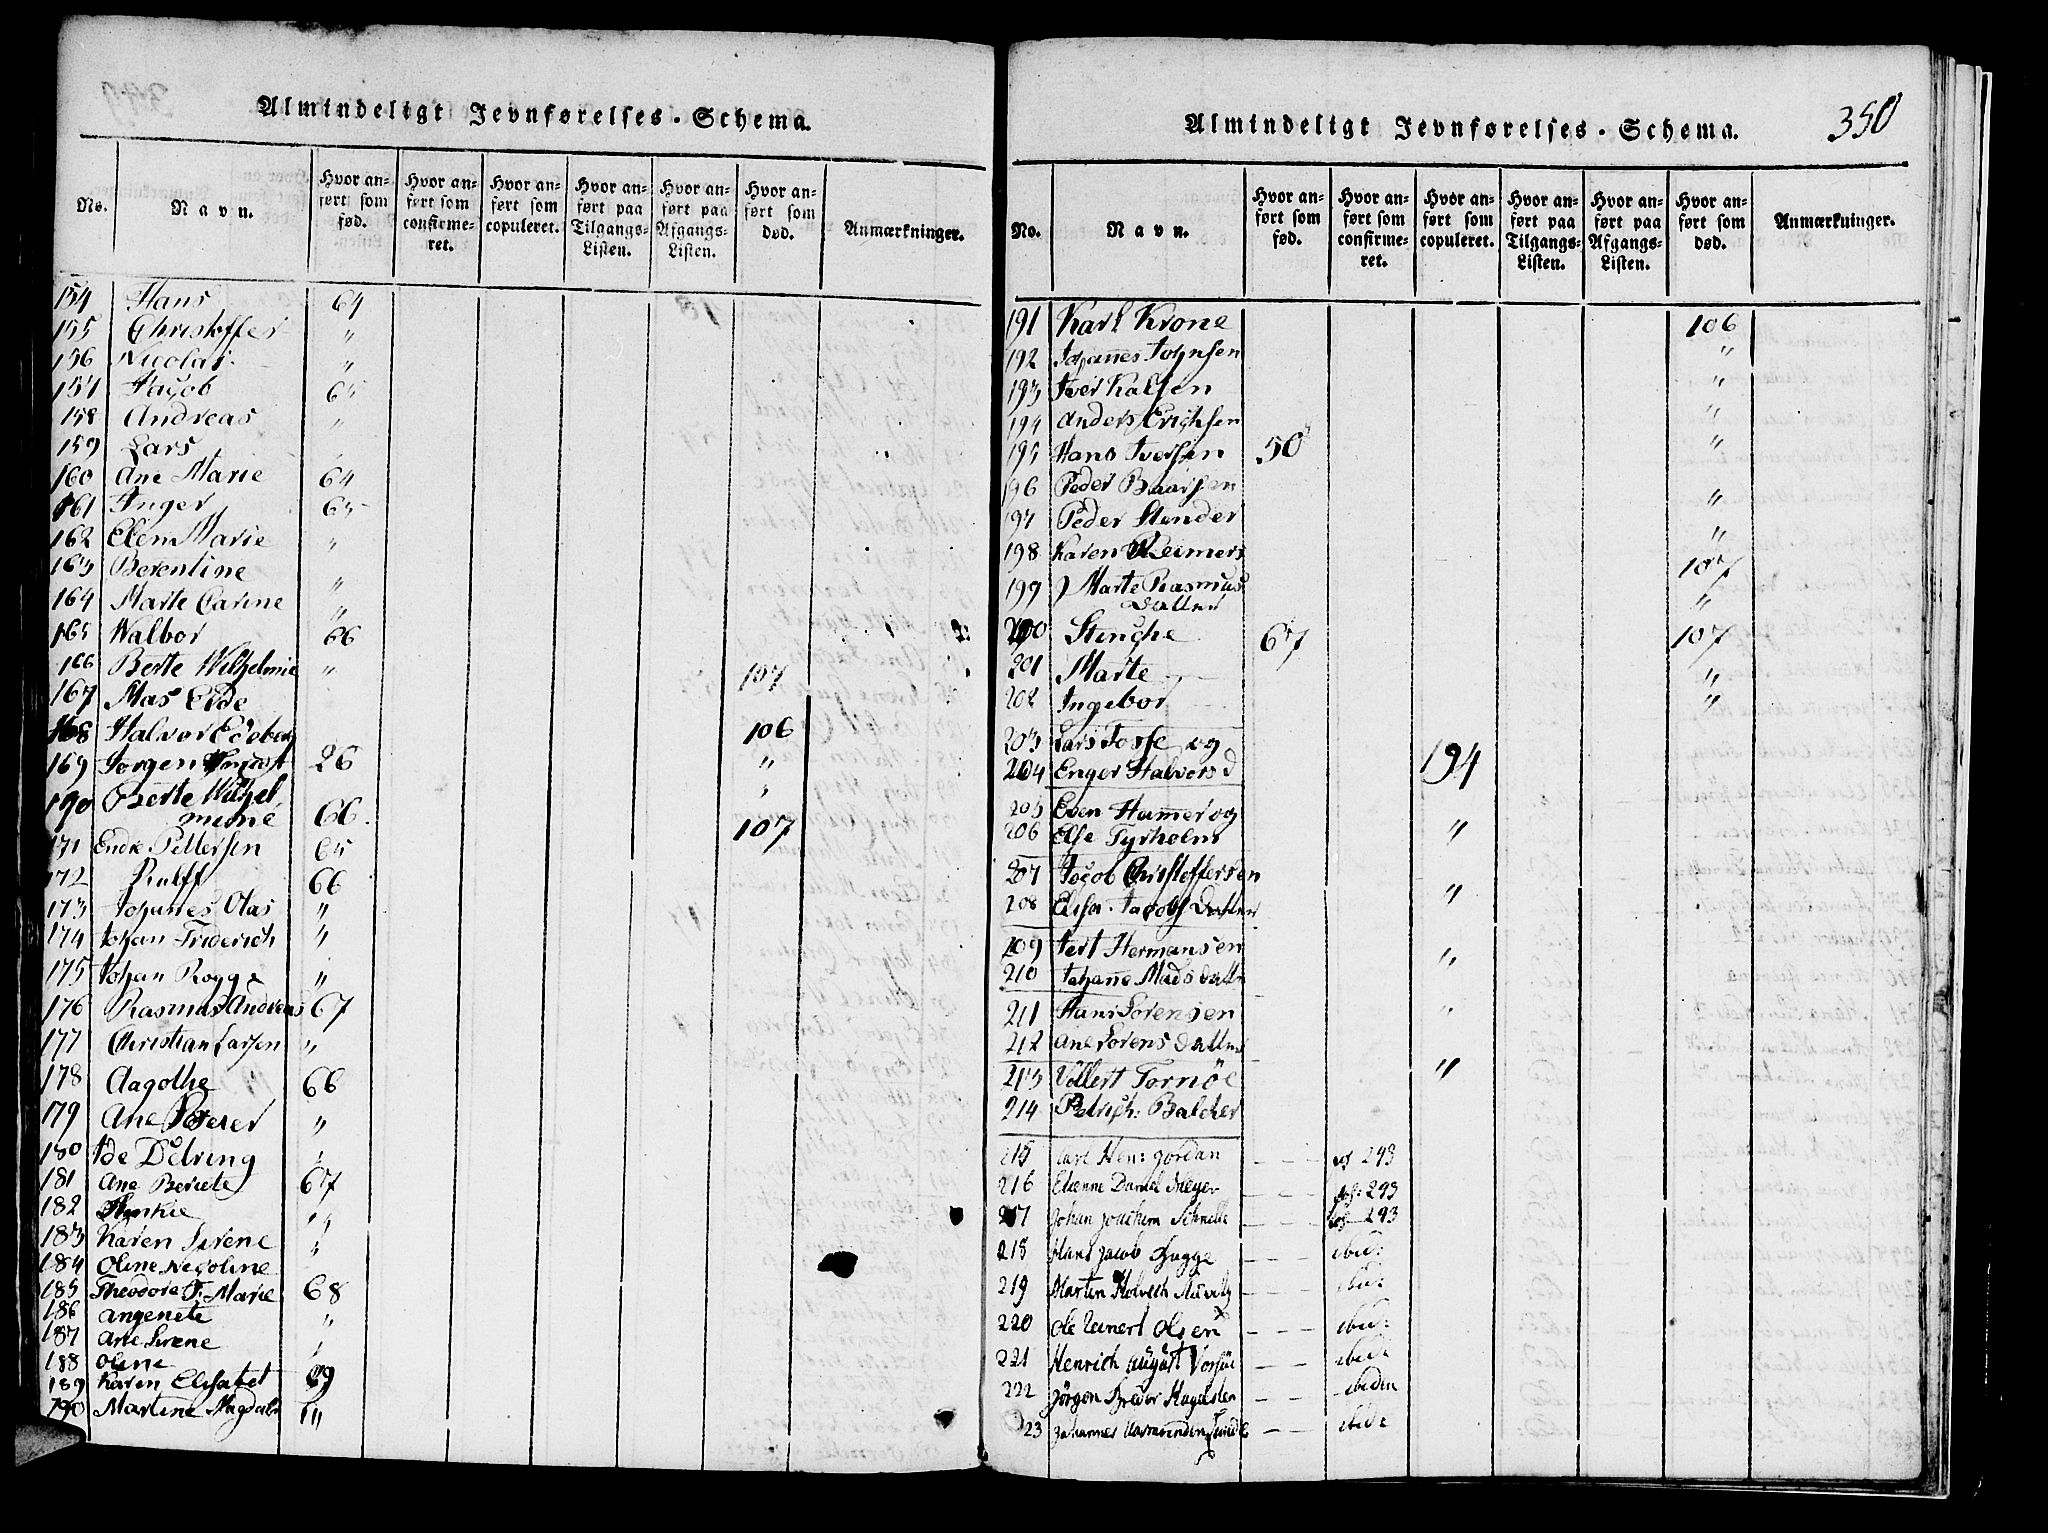 Almindeligt Jevnførelses-Schema.
No. Navn. Hvor anført som fød. Hvor anført som confirmeret. Hvor anført som copuleret. Hvor anført paa Tilgangs-Listen. Hvor anført paa Afgangs-Listen. Hvor anført som død. Anmærkninger.
154 Hans 64
155 Christoffer "
156 Nicolai "
157 Jacob 65
158 Andreas "
159 Lars
160 Ane Marie 64
161 Inger 65
162 Elen Marie "
163 Berentine
164 Marte Carine "
165 Walbor 66
166 Berte Wilhelmine "
167 Mas Elde 107
168 Halvor Edeberg 106
169 Jørgen 26 "
190 Berte Wilhel
mine 66. 107
171 Endre Pettersen 65
172 Rulff 66
173 Johannes Olas "
174 Johan Friderich "
175 Johan Rogge "
176 Rasmus Andreas 67
177 Christian Larsen "
178 Aagothe 66
179 Ane "
180 Ide Detring
181 Ane Berete 67
182
183 Karen Serene "
184 Oline Nicoline
185 Theodore F: Marie 68
186 Angenete "
187 Ane Serene
188 Oline
189 Karen Elisabet 69
190 Martine Magdale "
Almindeligt Jevnførelses-Schema.
350
No. Navn. Hvor anført som fød. Hvor anført som confirmeret. Hvor anført som copuleret. Hvor anført paa Tilgangs-Listen. Hvor anført paa Afgangs-Listen. Hvor anført som død. Anmærkninger.
191 Karl Krone 106
192 Johannes Johnsen "
193 Iver Kalsen "
194 Anders Erichsen "
195 Hans Iversen 50 "
196 Peder Baarsen "
197 Peder Stender "
198 Karen Reimers 107
199 Marte Rasmus
Datter "
200 Stinche 67 107
201 Marte "
202 Ingebor "
203 Lars Fosse og
204 Enger Halvors d 194
205 Even Hammer og
206 Else Tyrholm "
207 Jacob Christoffersen
208 Elisa Jacobs Datter "
209 Jert Hermansen
210 Johanne Mads datter "
211 Hans Sorensen "
212 Ane Sorens datter
213 Vollert Tornöe "
214 Petrich: Balcher
215 Carl Hen: Jordan - - - 293
216 Etienne Daniel Meyer - - - 293
217 Johan Joachim Schnelle - - - 293
218 Hans Jacob Bugge - - - ibid:
219 Morten - - - ibid:
220 Ole Reinert Olsen - - - ibid:
221 Henrich August - - - ibid:
222 Jörgen - - - ibidem
223 Johannes - - - ibid: